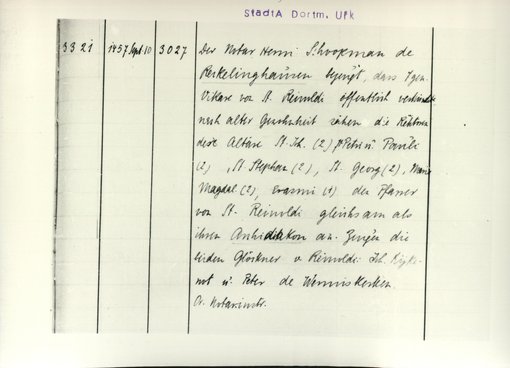 StadtA Dortm. Urk
3321 1457 Sept 10 3027 Der Notar Henri Schoopman de
Reckelinghausen bezeugt, dass 7 gen.
Vikare von St. Reinoldi öffentlich verkündet
nach alter Gewohnheit sähen die Rektoren
dese Altäre St. Jh. (2) Petri u Pauli
(2), St Stephan (2), St. Georg (2), Maria
Magdal (2), Erasmi (1) den Pfarrer
von St. Reinoldi gleichsam als
ihren Archidiakon an. Zeugen die
beiden Glöckner v Reinoldi: Jh.
not u. Peter de
Or. Notarinstr.